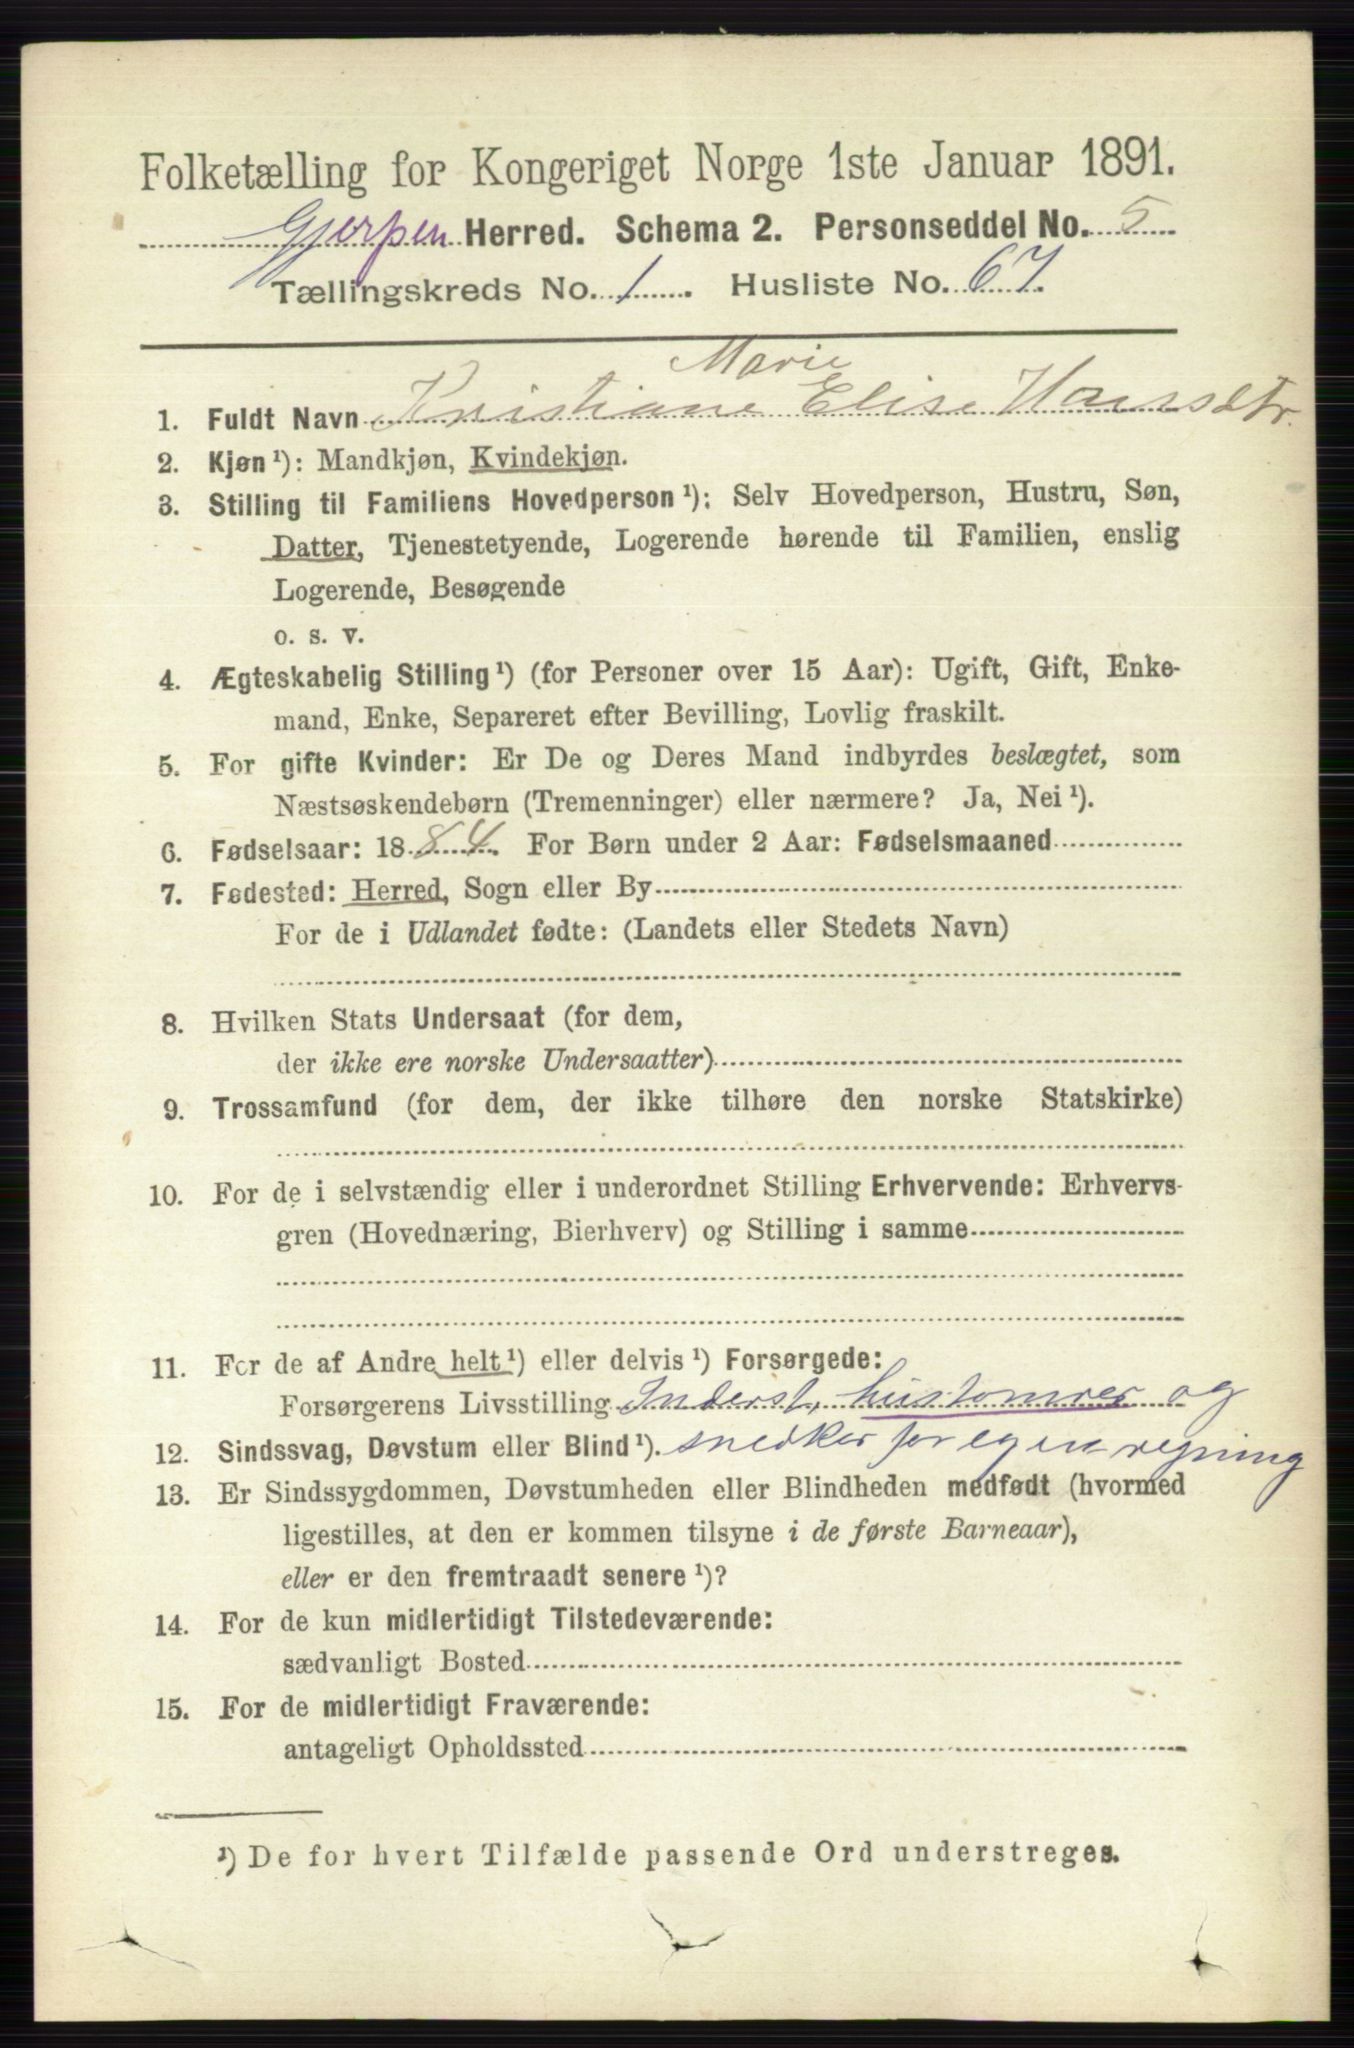 Folketælling for Kongeriget Norge 1ste Januar 1891.
Gjerpen Herred. Schema 2. Personseddel No. 5
Tællingskreds No. 1. Husliste No. 67.
Marie
1. Fuldt Navn Kristiane Elise Hansdtr.
2. Kjøn¹): Mandkjøn, Kvindekjøn.
3. Stilling til Familiens Hovedperson¹): Selv Hovedperson, Hustru, Søn,
Datter, Tjenestetyende, Logerende hørende til Familien, enslig
Logerende, Besøgende
o. s. v.
4. Ægteskabelig Stilling¹) (for Personer over 15 Aar): Ugift, Gift, Enke-
mand, Enke, Separeret efter Bevilling, Lovlig fraskilt.
5. For gifte Kvinder: Er De og Deres Mand indbyrdes beslægtet, som
Næstsøskendebørn (Tremenninger) eller nærmere? Ja, Nei¹).
6. Fødselsaar: 1884. For Børn under 2 Aar: Fødselsmaaned
7. Fødested: Herred, Sogn eller By
For de i Udlandet fødte: (Landets eller Stedets Navn)
8. Hvilken Stats Undersaat (for dem,
der ikke ere norske Undersaatter)
9. Trossamfund (for dem, der ikke tilhøre den norske Statskirke)
10. For de i selvstændig eller i underordnet Stilling Erhvervende: Erhvervs-
gren (Hovednæring, Bierhverv) og Stilling i samme
11. For de af Andre helt¹) eller delvis¹) Forsørgede:
Forsørgerens Livsstilling Inderst, hustømrer og
12. Sindssvag, Døvstum eller Blind¹). snedker for egen regning
13. Er Sindssygdommen, Døvstumheden eller Blindheden medfødt (hvormed
ligestilles, at den er kommen tilsyne i de første Barneaar),
eller er den fremtraadt senere¹)?
14. For de kun midlertidigt Tilstedeværende:
sædvanligt Bosted
15. For de midlertidigt Fraværende:
antageligt Opholdssted
¹) De for hvert Tilfælde passende Ord understreges.